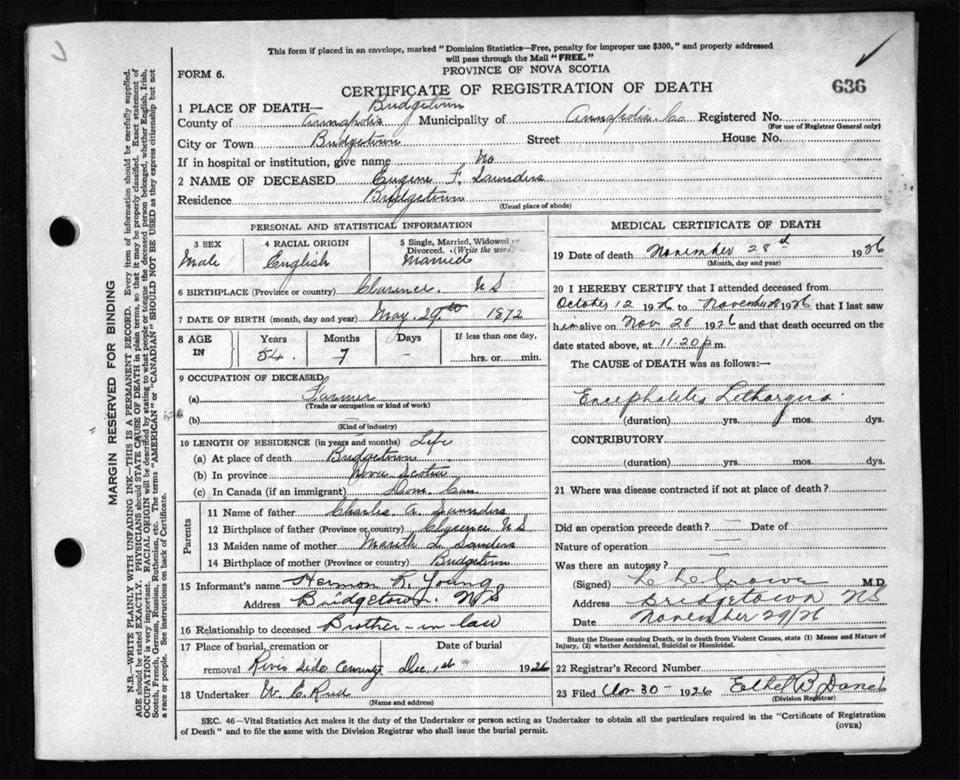 This form if placed in an envelope, marked "Dominion Statistics—Free, penalty for improper use $300," and properly addressed
will pass through the Mail "FREE."
FORM 6.
PROVINCE OF NOVA SCOTIA
CERTIFICATE OF REGISTRATION OF DEATH
636
1 PLACE OF DEATH— Bridgetown
County of Annapolis Municipality of Annapolis Co Registered No.
(For use of Registrar General only)
City or Town Bridgetown Street House No.
If in hospital or institution, give name No
2 NAME OF DECEASED Eugene F. Saunders
Residence Bridgetown
(Usual place of abode)
PERSONAL AND STATISTICAL INFORMATION
3 SEX 4 RACIAL ORIGIN 5 Single, Married, Widowed or
Divorced. (Write the word)
Male English Married
6 BIRTHPLACE (Province or country) Clarence. N S
7 DATE OF BIRTH (month, day and year) May. 29th 1872
8 AGE IN Years Months Days If less than one day,
54. 7 – hrs. or min.
9 OCCUPATION OF DECEASED
(a) Farmer
(Trade or occupation or kind of work)
(b)
(Kind of industry)
10 LENGTH OF RESIDENCE (in years and months) Life
(a) At place of death Bridgetown
(b) In province Nova Scotia
(c) In Canada (if an immigrant) Dom. Can
Parents
11 Name of father Charlie A. Saunders
12 Birthplace of father (Province or country) Clarence NS
13 Maiden name of mother L. Sanders
14 Birthplace of mother (Province or country) Bridgetown
15 Informant's name Hermon R. Young
Address Bridgetown. NS
16 Relationship to deceased Brother-in-law
17 Place of burial, cremation or Date of burial
removal River Side Cemetery Dec. 1st 1926
18 Undertaker W. E. Reed
(Name and address)
MEDICAL CERTIFICATE OF DEATH
19 Date of death November 28th 1926
(Month, day and year)
20 I HEREBY CERTIFY that I attended deceased from
October 12 1926 to November 28 1926 that I last saw
him alive on Nov 28 1926 and that death occurred on the
date stated above, at 11.20 p m.
The CAUSE of DEATH was as follows:—
Encephalitis Lethargica
(duration) yrs. mos. dys.
CONTRIBUTORY
(duration) yrs. mos. dys.
21 Where was disease contracted if not at place of death?
Did an operation precede death? — Date of
Nature of operation —
Was there an autopsy? —
(Signed) M.D.
Address Bridgetown NS
Date November 29/26
State the Disease causing Death, or in death from Violent Causes, state (1) Means and Nature of
Injury, (2) whether Accidental, Suicidal or Homicidal.
22 Registrar's Record Number
23 Filed Nov 30 - 1926 Ethel B
(Division Registrar)
SEC. 46—Vital Statistics Act makes it the duty of the Undertaker or person acting as Undertaker to obtain all the particulars required in the "Certificate of Registration
of Death" and to file the same with the Division Registrar who shall issue the burial permit.
(OVER)
MARGIN RESERVED FOR BINDING
N.B.—WRITE PLAINLY, WITH UNFADING INK—THIS IS A PERMANENT RECORD. Every item of information should be carefully supplied.
AGE should be stated EXACTLY. PHYSICIANS should STATE CAUSE OF DEATH in plain terms, so that it may be properly classified. Exact statement of
OCCUPATION is very important. RACIAL ORIGIN will be described by stating to what people or tongue the deceased person belonged, whether English, Irish,
Scotch, French, German, Russian, Ruthenian, etc. The terms "AMERICAN" or "CANADIAN" SHOULD NOT BE USED as they express citizenship but not
a race or people. See instructions on back of Certificate.